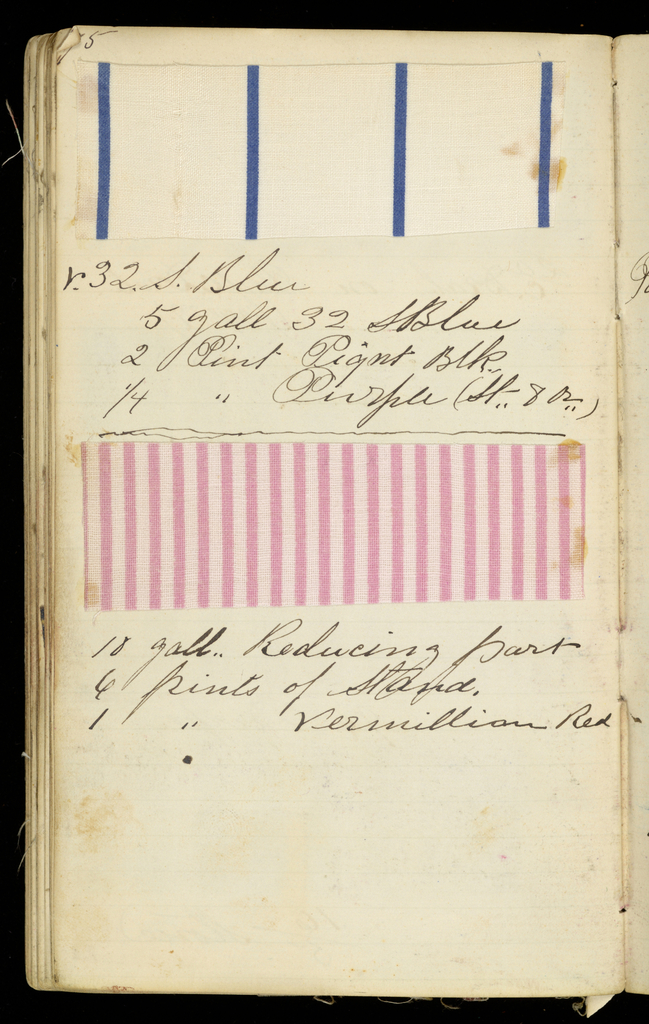 75
r. 32. S. Blue
5 gall 32 S Blue
2 Pint Pignt Blk.
1/4 " Purple (St.. 8 oz..)
10 gall.. Reducing part
6 pints of Stand.
1 " Vermillian Red